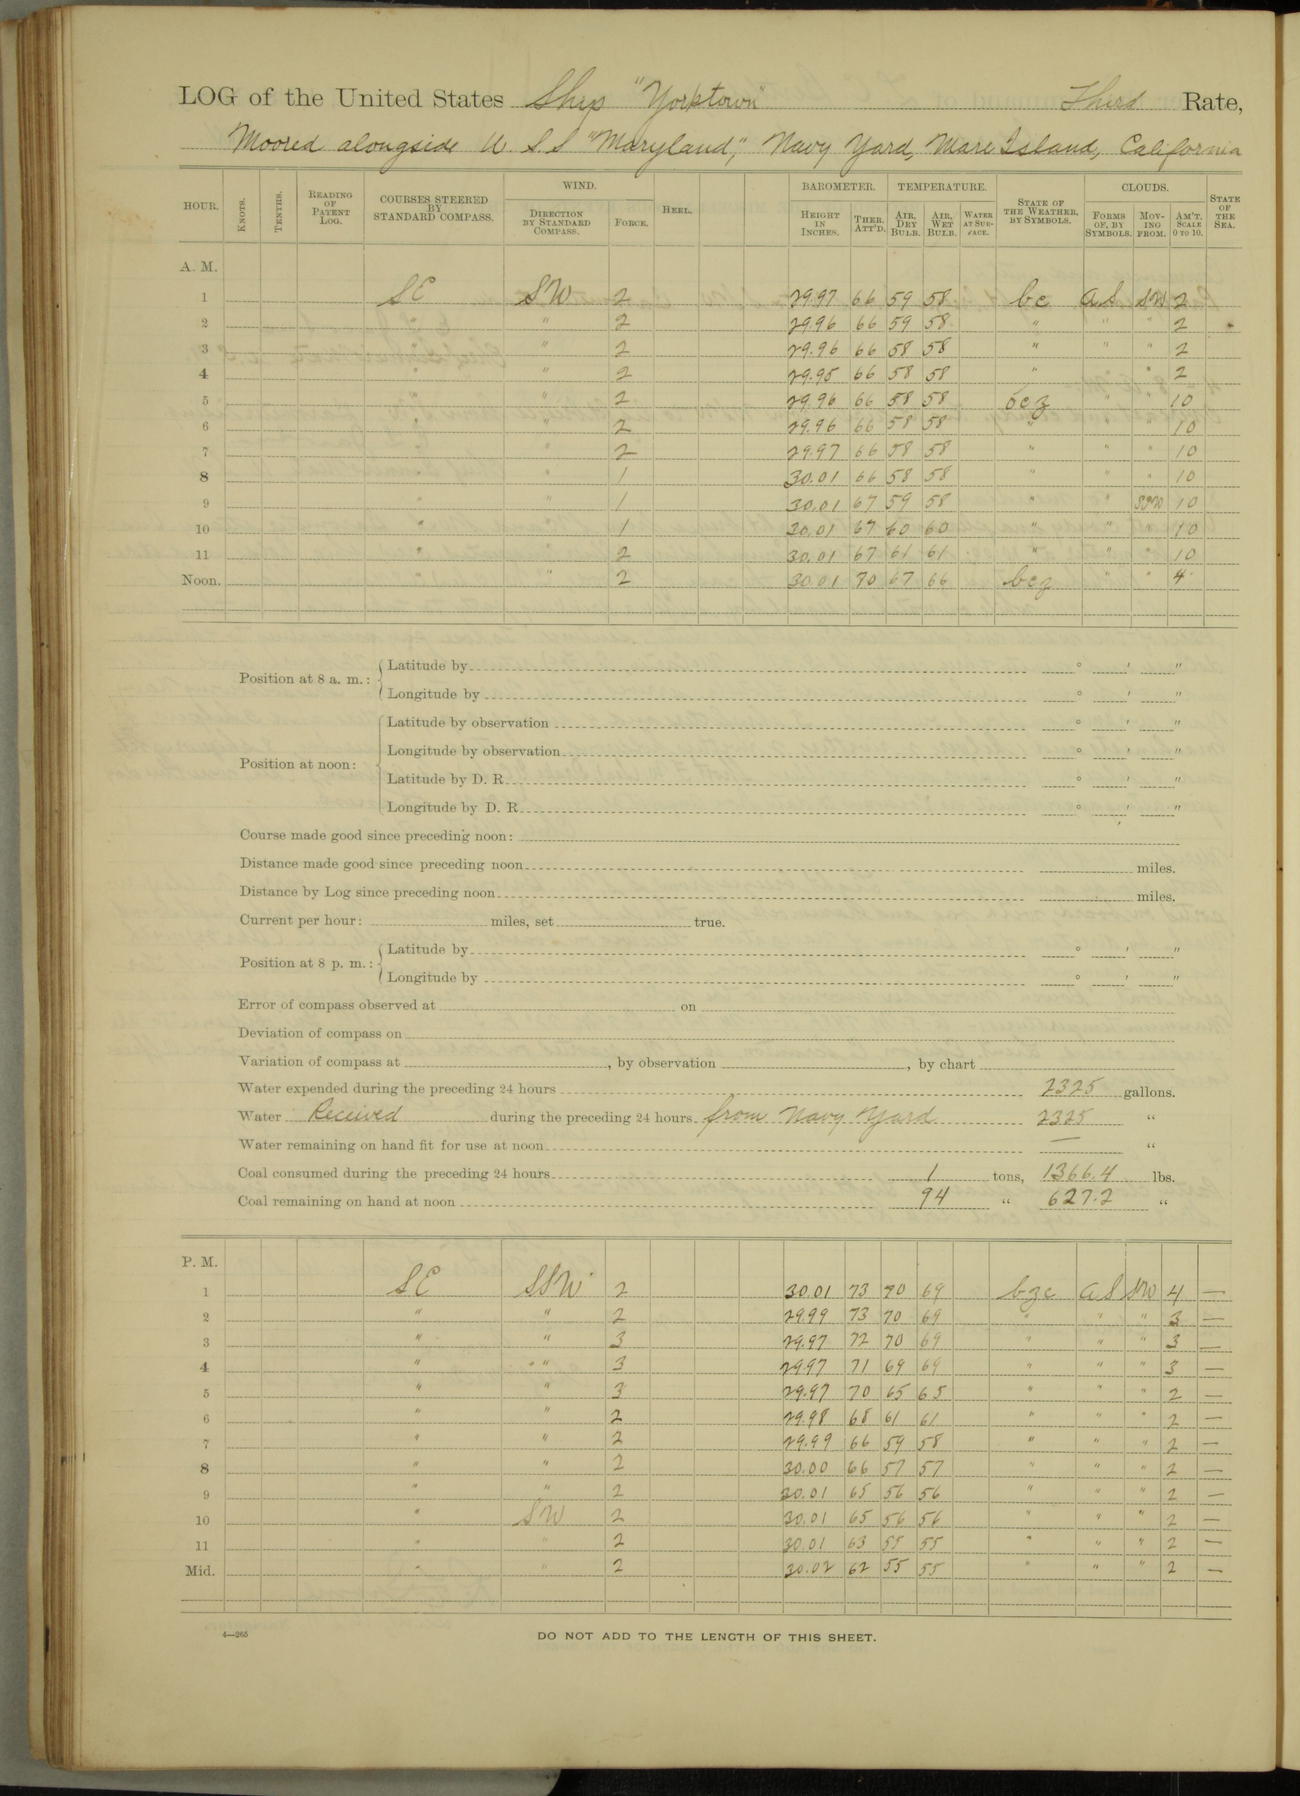 LOG of the United States Ship "Yorktown" Third Rate,
Moored alongside U. S. S "Maryland," Navy Yard, Mare Island, California
HOUR. KNOTS. TENTHS. READING OF PATENT LOG. COURSES STEERED BY STANDARD COMPASS. WIND. DIRECTION BY STANDARD COMPASS. FORCE. HEEL. BAROMETER. HEIGHT IN INCHES. THER. ATT'D. TEMPERATURE. AIR, DRY BULB. AIR, WET BULB. WATER AT SUR-FACE. STATE OF THE WEATHER, BY SYMBOLS. CLOUDS. FORMS OF, BY SYMBOLS. MOV-ING FROM. AM'T. SCALE 0 TO 10. STATE OF THE SEA.
A. M.
1 SE SW 2 29.97 66 59 58 bc a.S SW 2
2 " " 2 29.96 66 59 58 " " " 2
3 " " 2 29.96 66 58 58 " " " 2
4 " " 2 29.95 66 58 58 " " " 2
5 " " 2 29.96 66 58 58 bcz " " 10
6 " " 2 29.96 66 58 58 " " " 10
7 " " 2 29.97 66 58 58 " " " 10
8 " " 1 30.01 66 58 58 " " " 10
9 " " 1 30.01 67 59 58 " " SSW 10
10 " " 1 30.01 67 60 60 " " " 10
11 " " 2 30.01 67 61 61 " " " 10
Noon. " " 2 30.01 70 67 66 bcz " " 4
Position at 8 a. m.:
Latitude by ° ' "
Longitude by ° ' "
Position at noon:
Latitude by observation ° ' "
Longitude by observation ° ' "
Latitude by D. R. ° ' "
Longitude by D. R. ° ' "
Course made good since preceding noon:
Distance made good since preceding noon miles.
Distance by Log since preceding noon miles.
Current per hour: miles, set true.
Position at 8 p. m.:
Latitude by ° ' "
Longitude by ° ' "
Error of compass observed at on
Deviation of compass on
Variation of compass at , by observation , by chart
Water expended during the preceding 24 hours 2325 gallons.
Water Received during the preceding 24 hours from Navy Yard 2325 "
Water remaining on hand fit for use at noon — "
Coal consumed during the preceding 24 hours 1 tons, 1366.4 lbs.
Coal remaining on hand at noon 94 " 627.2 "
P. M.
1 SE SSW 2 30.01 73 70 69 bzc a S SW 4 —
2 " " 2 29.99 73 70 69 " " " 3 —
3 " " 3 29.97 72 70 69 " " " 3 —
4 " " 3 29.97 71 69 69 " " " 3 —
5 " " 3 29.97 70 65 65 " " " 2 —
6 " " 2 29.98 68 61 61 " " " 2 —
7 " " 2 29.99 66 59 58 " " " 2 —
8 " " 2 30.00 66 57 57 " " " 2 —
9 " " 2 30.01 65 56 56 " " " 2 —
10 " SW 2 30.01 65 56 56 " " " 2 —
11 " " 2 30.01 63 55 55 " " " 2 —
Mid. " " 2 30.02 62 55 55 " " " 2 —
4—265
DO NOT ADD TO THE LENGTH OF THIS SHEET.